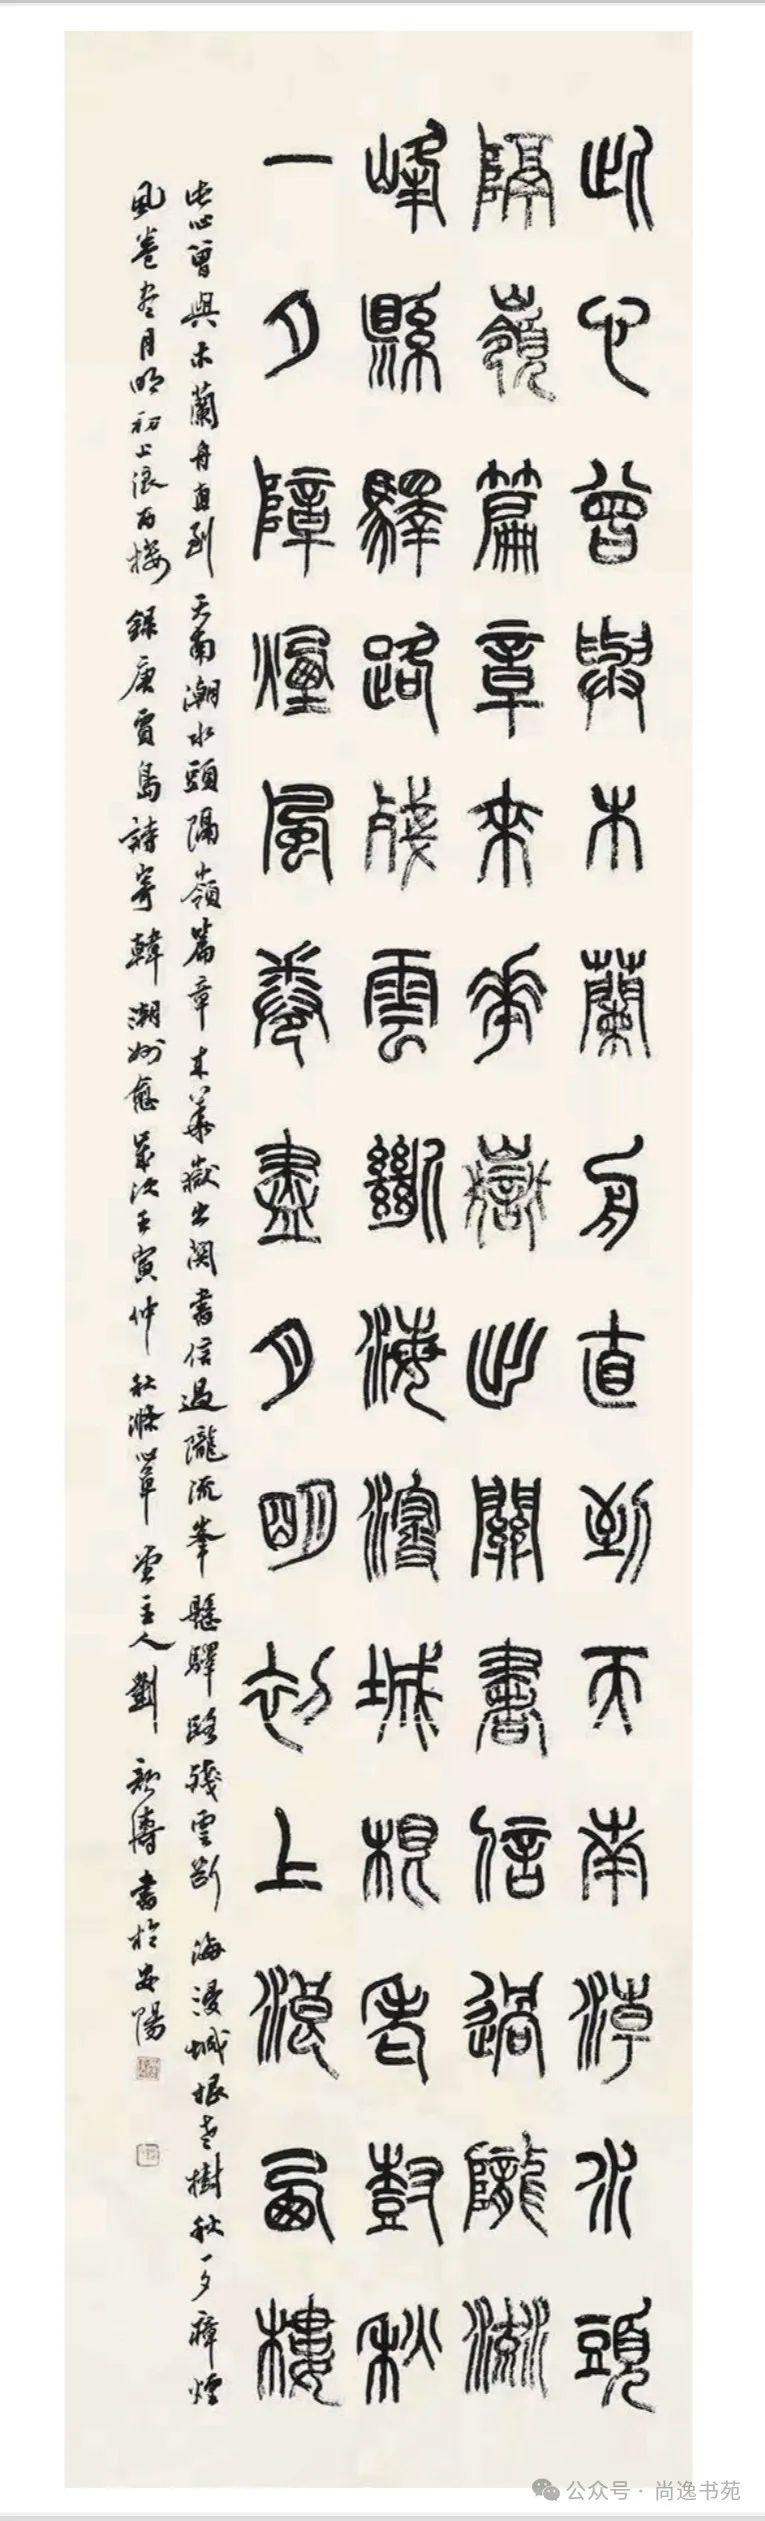 此心曾與木蘭舟直到天南潮水頭
隔嶺篇章來華嶽出關書信過隴流
峰縣驛路殘雲斷海浸城根老尌秋
一夕障煙風卷盡月明初上浪西樓
此心曾與木蘭舟直到天南潮水頭隔嶺篇章來華嶽出關書信過隴流峯懸驛路殘雲斷海浸城根老樹秋一夕瘴煙
風卷盡月明初上浪西樓錄唐賈島詩寄韓潮州愈歲次壬寅仲秋滌心草堂主人劉新濤書於安陽
公众号·尚逸书苑